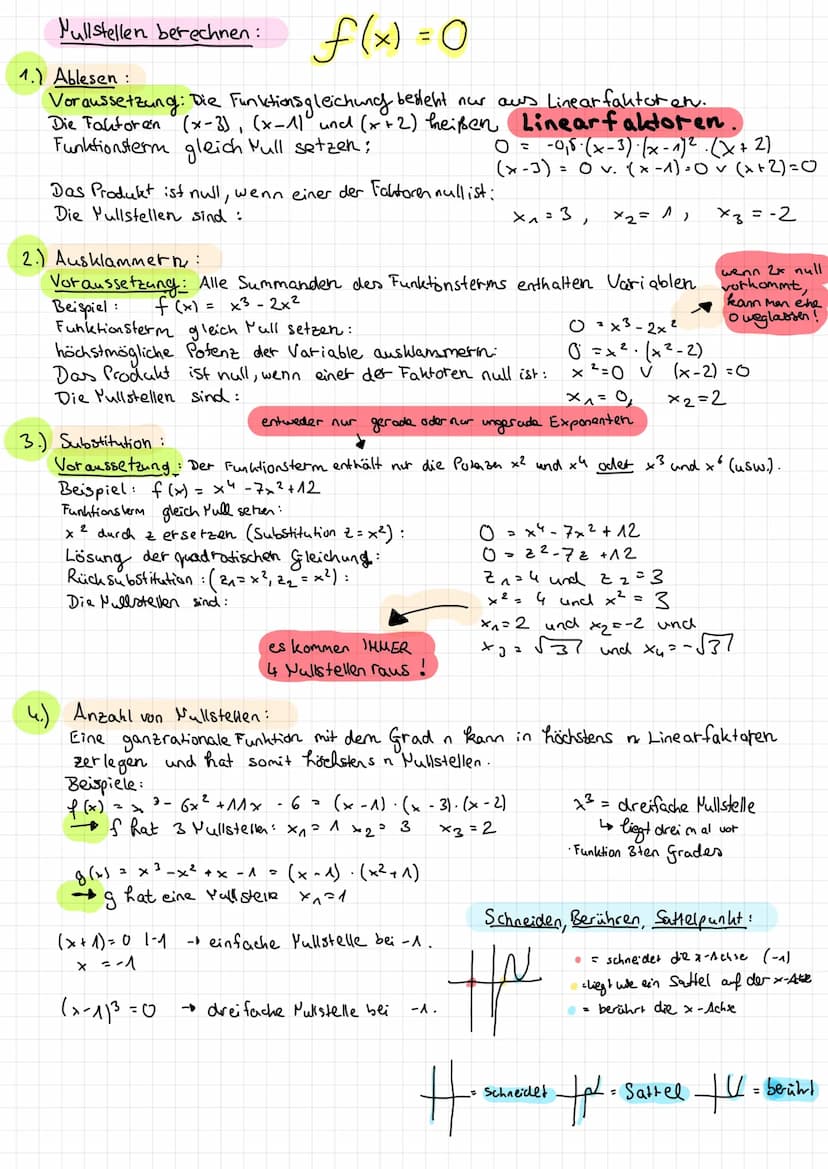 Nullstellen berechnen: f(x) = 0
1.) Ablesen:
Voraussetzung: Die Funktionsgleichung besteht nur aus Linearfaktoren.
Die Faktoren (x-3), (x-1) und (x+2) heißen Linearfaktoren.
Funktionsterm gleich Null setzen: 0 = -0,5·(x-3)·(x-1)²·(x+2)
(x-3) = 0 v. (x-1)=0 v (x+2)=0
Das Produkt ist null, wenn einer der Faktoren null ist:
Die Nullstellen sind: x₁=3, x₂=1, x₃=-2
2.) Ausklammern:
Voraussetzung: Alle Summanden des Funktionsterms enthalten Variablen
wenn 2x null
vorkommt,
kann man eine
0 weglassen!
Beispiel: f(x) = x³-2x²
Funktionsterm gleich Null setzen: 0 = x³-2x²
höchstmögliche Potenz der Variable ausklammern: 0 = x²·(x²-2)
Das Produkt ist null, wenn einer der Faktoren null ist: x²=0 v (x-2)=0
Die Nullstellen sind: x₁=0, x₂=2
entweder nur gerade oder nur ungerade Exponenten
3.) Substitution:
Voraussetzung: Der Funktionsterm enthält nur die Potenzen x² und x⁴ oder x³ und x⁶ (usw.).
Beispiel: f(x) = x⁴-7x²+12
Funktionsterm gleich Null setzen:
x² durch z ersetzen (Substitution z=x²): 0 = x⁴-7x²+12
Lösung der quadratischen Gleichung: 0 = z²-7z+12
Rücksubstitution: (z₁=x², z₂=x²): z₁=4 und z₂=3
Die Nullstellen sind: x²=4 und x²=3
x₁=2 und x₂=-2 und
x₃=√3 und x₄=-√3
es kommen IMMER
4 Nullstellen raus!
4.) Anzahl von Nullstellen:
Eine ganzrationale Funktion mit dem Grad n kann in höchstens n Linearfaktoren
zerlegen und hat somit höchstens n Nullstellen.
Beispiele:
f(x) = x³-6x²+11x-6 = (x-1)·(x-3)·(x-2)
→ f hat 3 Nullstellen: x₁=1 x₂=3 x₃=2
x³ = dreifache Nullstelle
↳ liegt drei mal vor
· Funktion 3ten Grades
g(x) = x³-x²+x-1 = (x-1)·(x²+1)
→ g hat eine Nullstelle x₁=1
(x+1)=0 |-1 → einfache Nullstelle bei -1.
x = -1
(x-1)³=0 → dreifache Nullstelle bei -1.
Schneiden, Berühren, Sattelpunkt:
= schneidet die x-Achse (-1)
= liegt wie ein Sattel auf der x-Achse
= berührt die x-Achse
= schneidet = Sattel = berührt